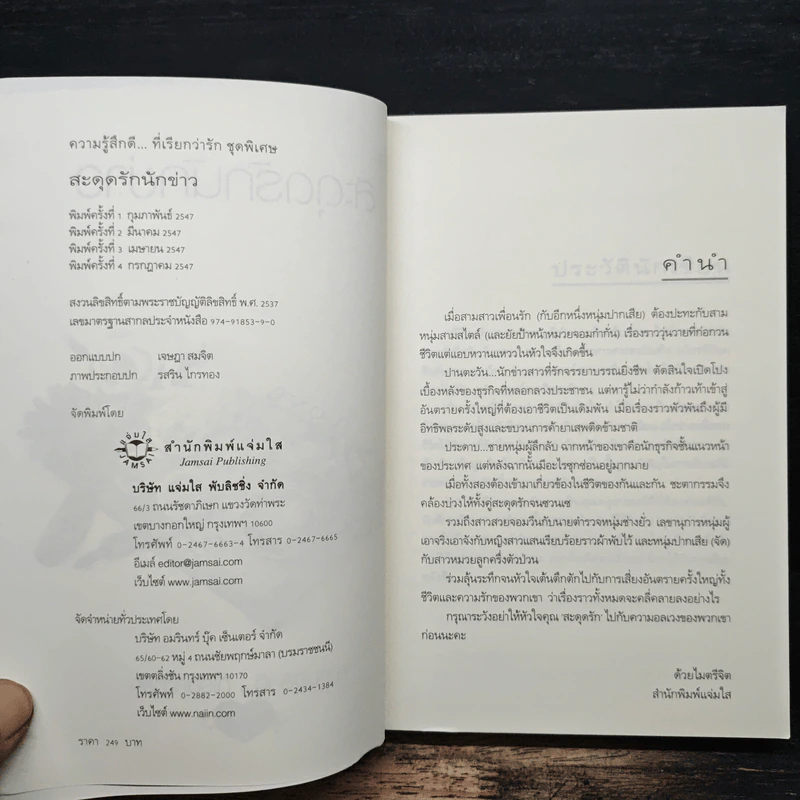 ความรู้สึกดี... ที่เรียกว่ารัก ชุดพิเศษ
สะดุดรักนักข่าว
พิมพ์ครั้งที่ 1 กุมภาพันธ์ 2547
พิมพ์ครั้งที่ 2 มีนาคม 2547
พิมพ์ครั้งที่ 3 เมษายน 2547
พิมพ์ครั้งที่ 4 กรกฎาคม 2547
สงวนลิขสิทธิ์ตามพระราชบัญญัติลิขสิทธิ์ พ.ศ. 2537
เลขมาตรฐานสากลประจำหนังสือ 974-91853-9-0
ออกแบบปก เจษฎา สมจิต
ภาพประกอบปก รสริน ไกรทอง
จัดพิมพ์โดย
แจ่มใส
JAMSAI
สำนักพิมพ์แจ่มใส
Jamsai Publishing
บริษัท แจ่มใส พับลิชชิ่ง จำกัด
66/3 ถนนรัชดาภิเษก แขวงวัดท่าพระ
เขตบางกอกใหญ่ กรุงเทพฯ 10600
โทรศัพท์ 0-2467-6663-4 โทรสาร 0-2467-6665
อีเมล์ editor@jamsai.com
เว็บไซต์ www.jamsai.com
จัดจำหน่ายทั่วประเทศโดย
บริษัท อมรินทร์ บุ๊ค เซ็นเตอร์ จำกัด
65/60-62 หมู่ 4 ถนนชัยพฤกษ์มาลา (บรมราชชนนี)
เขตตลิ่งชัน กรุงเทพฯ 10170
โทรศัพท์ 0-2882-2000 โทรสาร 0-2434-1384
เว็บไซต์ www.naiin.com
ราคา 249 บาท
คำนำ
เมื่อสามสาวเพื่อนรัก (กับอีกหนึ่งหนุ่มปากเสีย) ต้องปะทะกับสาม
หนุ่มสามสไตล์ (และยัยป้าหน้าหมวยจอมกำกั่น) เรื่องราววุ่นวายที่ก่อกวน
ชีวิตแต่แอบหวานแหววในหัวใจจึงเกิดขึ้น
ปานตะวัน...นักข่าวสาวที่รักจรรยาบรรณยิ่งชีพ ตัดสินใจเปิดโปง
เบื้องหลังของธุรกิจที่หลอกลวงประชาชน แต่หารู้ไม่ว่ากำลังก้าวเท้าเข้าสู่
อันตรายครั้งใหญ่ที่ต้องเอาชีวิตเป็นเดิมพัน เมื่อเรื่องราวพัวพันถึงผู้มี
อิทธิพลระดับสูงและขบวนการค้ายาเสพติดข้ามชาติ
ประดาบ...ชายหนุ่มผู้ลึกลับ ฉากหน้าของเขาคือนักธุรกิจชั้นแนวหน้า
ของประเทศ แต่หลังฉากนั้นมีอะไรซุกซ่อนอยู่มากมาย
เมื่อทั้งสองต้องเข้ามาเกี่ยวข้องในชีวิตของกันและกัน ชะตากรรมจึง
คล้องบ่วงให้ทั้งคู่สะดุดรักจนซวนเซ
รวมถึงสาวสวยจอมวีนกับนายตำรวจหนุ่มช่างยั่ว เลขานุการหนุ่มผู้
เอาจริงเอาจังกับหญิงสาวแสนเรียบร้อยราวผ้าพับไว้ และหนุ่มปากเสีย (จัด)
กับสาวหมวยลูกครึ่งตัวป่วน
ร่วมลุ้นระทึกจนหัวใจเต้นตึกตักไปกับการเสี่ยงอันตรายครั้งใหญ่ทั้ง
ชีวิตและความรักของพวกเขา ว่าเรื่องราวทั้งหมดจะคลี่คลายลงอย่างไร
กรุณาระวังอย่าให้หัวใจคุณ 'สะดุดรัก' ไปกับความอลเวงของพวกเขา
ก่อนนะคะ
ด้วยไมตรีจิต
สำนักพิมพ์แจ่มใส